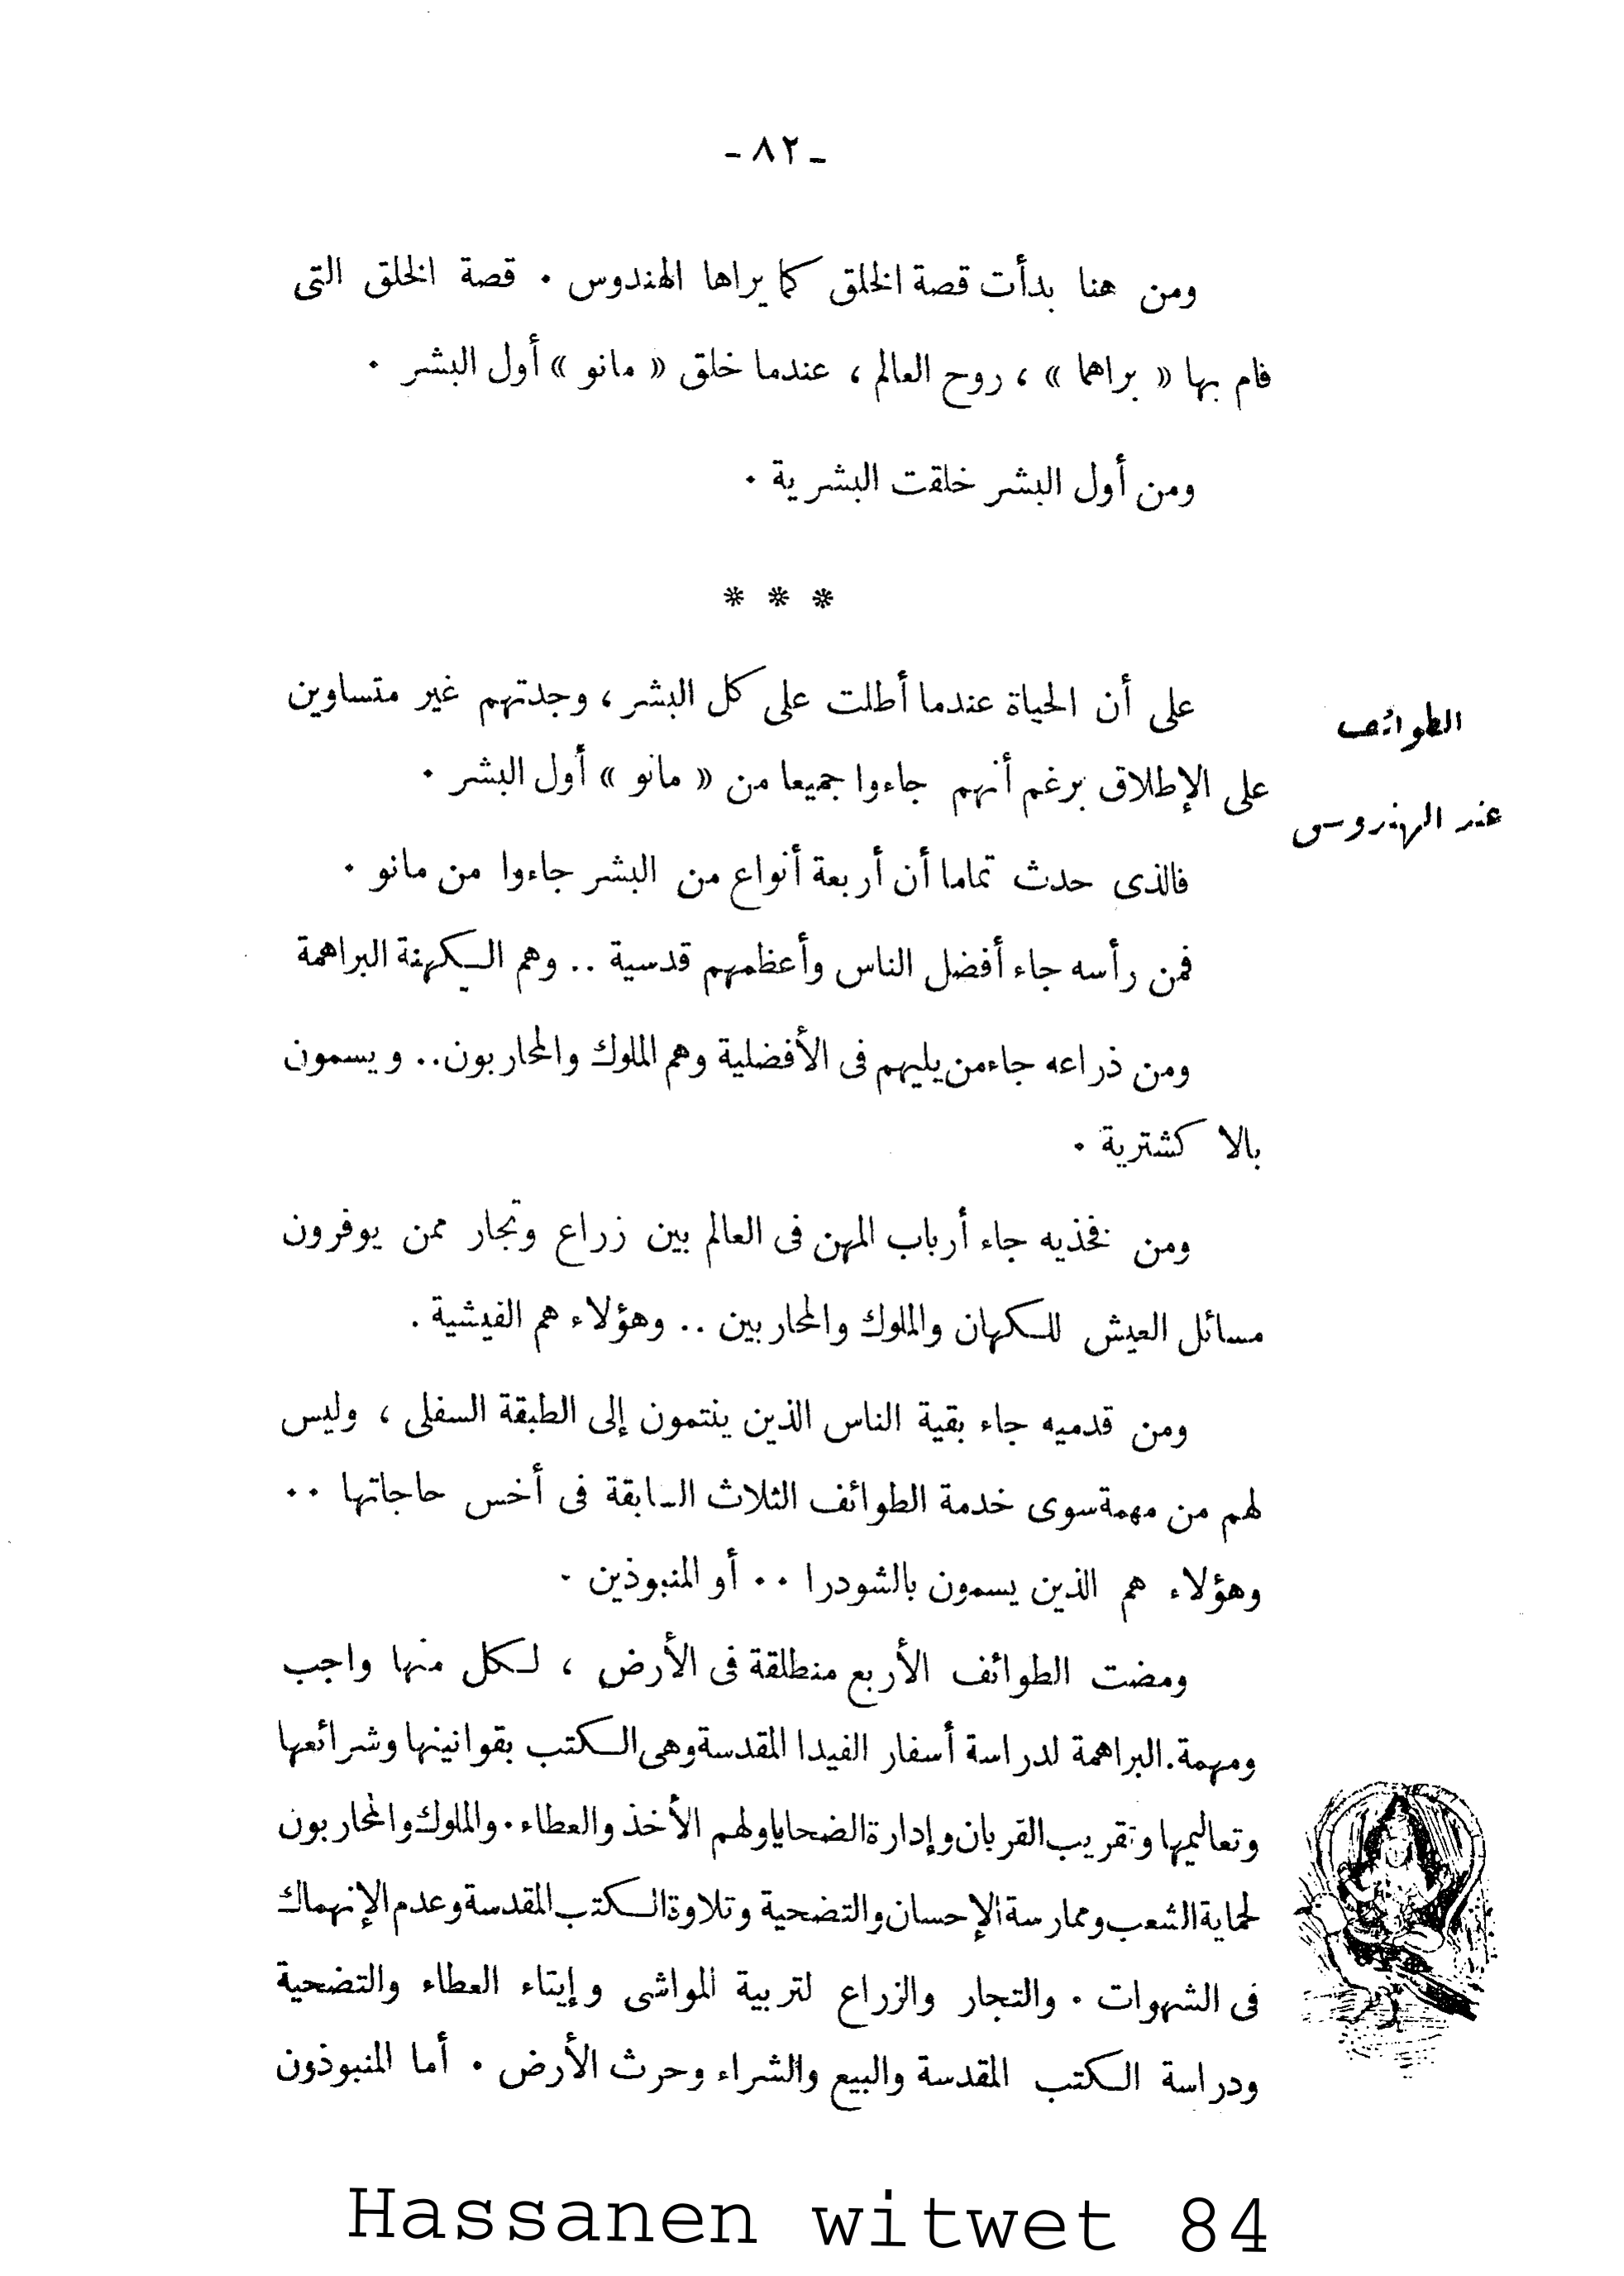 - ٨٢ -
ومن هنا بدأت قصة الخلق كما يراها الهندوس . قصة الخلق التى
قام بها « براهما » ، روح العالم ، عندما خلق « مانو » أول البشر .
ومن أول البشر خلقت البشرية .
* * *
الطوائف
عند الهندوس
على أن الحياة عندما أطلت على كل البشر ، وجدتهم غير متساوين
على الإطلاق برغم أنهم جاءوا جميعا من « مانو » أول البشر .
فالذى حدث تماما أن أربعة أنواع من البشر جاءوا من مانو .
فمن رأسه جاء أفضل الناس وأعظمهم قدسية .. وهم الكهنة البراهمة
ومن ذراعه جاء من يليهم فى الأفضلية وهم الملوك والمحاربون .. ويسمون
بالا كشترية .
ومن فخذيه جاء أرباب المهن فى العالم بين زراع وتجار ممن يوفرون
مسائل العيش للكهان والملوك والمحاربين .. وهؤلاء هم الفيشية .
ومن قدميه جاء بقية الناس الذين ينتمون إلى الطبقة السفلى ، وليس
لهم من مهمة سوى خدمة الطوائف الثلاث السابقة فى أخس حاجاتها ..
وهؤلاء هم الذين يسمون بالشودرا .. أو المنبوذين .
ومضت الطوائف الأربع منطلقة فى الأرض ، لكل منها واجب
ومهمة . البراهمة لدراسة أسفار الفيدا المقدسة وهى الكتب بقوانينها وشرائعها
وتعاليمها وتقريب القربان وإدارة الضحايا ولهم الأخذ والعطاء . والملوك والمحاربون
لحماية الشعب وممارسة الإحسان والتضحية وتلاوة الكتب المقدسة وعدم الإنهماك
فى الشهوات . والتجار والزراع لتربية المواشى وإيتاء العطاء والتضحية
ودراسة الكتب المقدسة والبيع والشراء وحرث الأرض . أما المنبوذون
Hassanen witwet 84